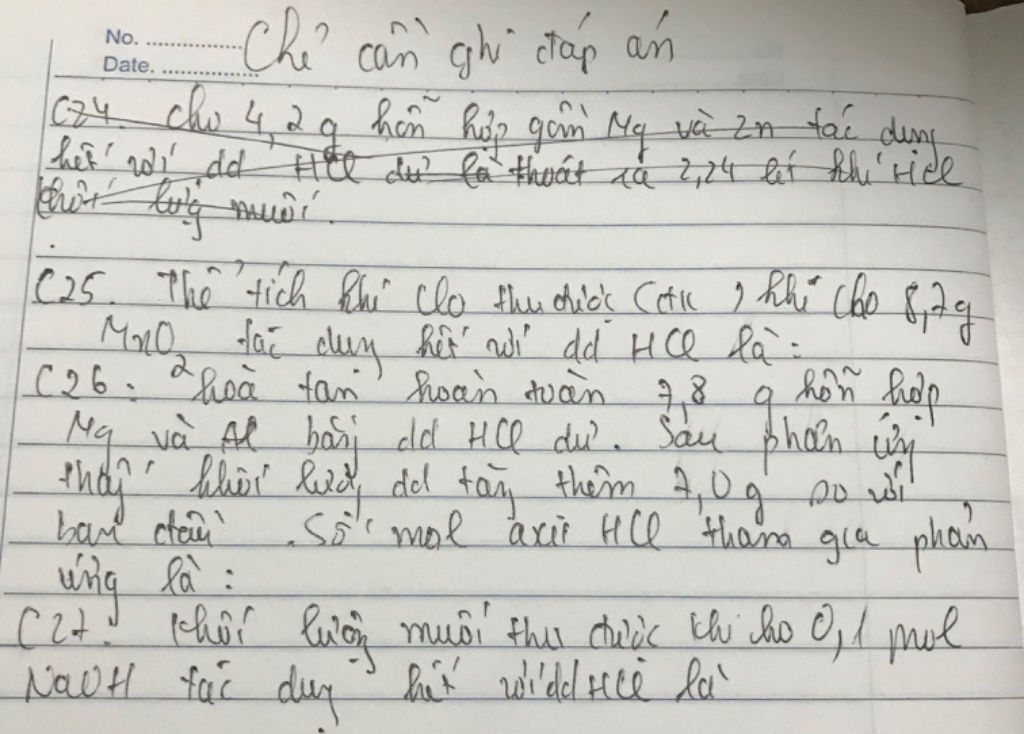 No. ............... Chỉ cần ghi đáp án
Date. ...............
C24. Cho 4,2 g hỗn hợp gồm Mg và Zn tác dụng
hết với dd HCl dư là thoát ra 2,24 lít khí HCl
khối lượng muối.
C25. Thể tích khí Clo thu được (đtk ) khi cho 8,7g
MnO2 tác dụng hết với dd HCl là :
C26 : hoà tan hoàn toàn 7,8 g hỗn hợp
Mg và Al bằng dd HCl dư. Sau phản ứng
thấy khối lượng dd tăng thêm 7,0g so với
ban đầu . Số mol axit HCl tham gia phản
ứng là :
C27. Khối lượng muối thu được khi cho 0,1 mol
NaOH tác dụng hết với dd HCl là